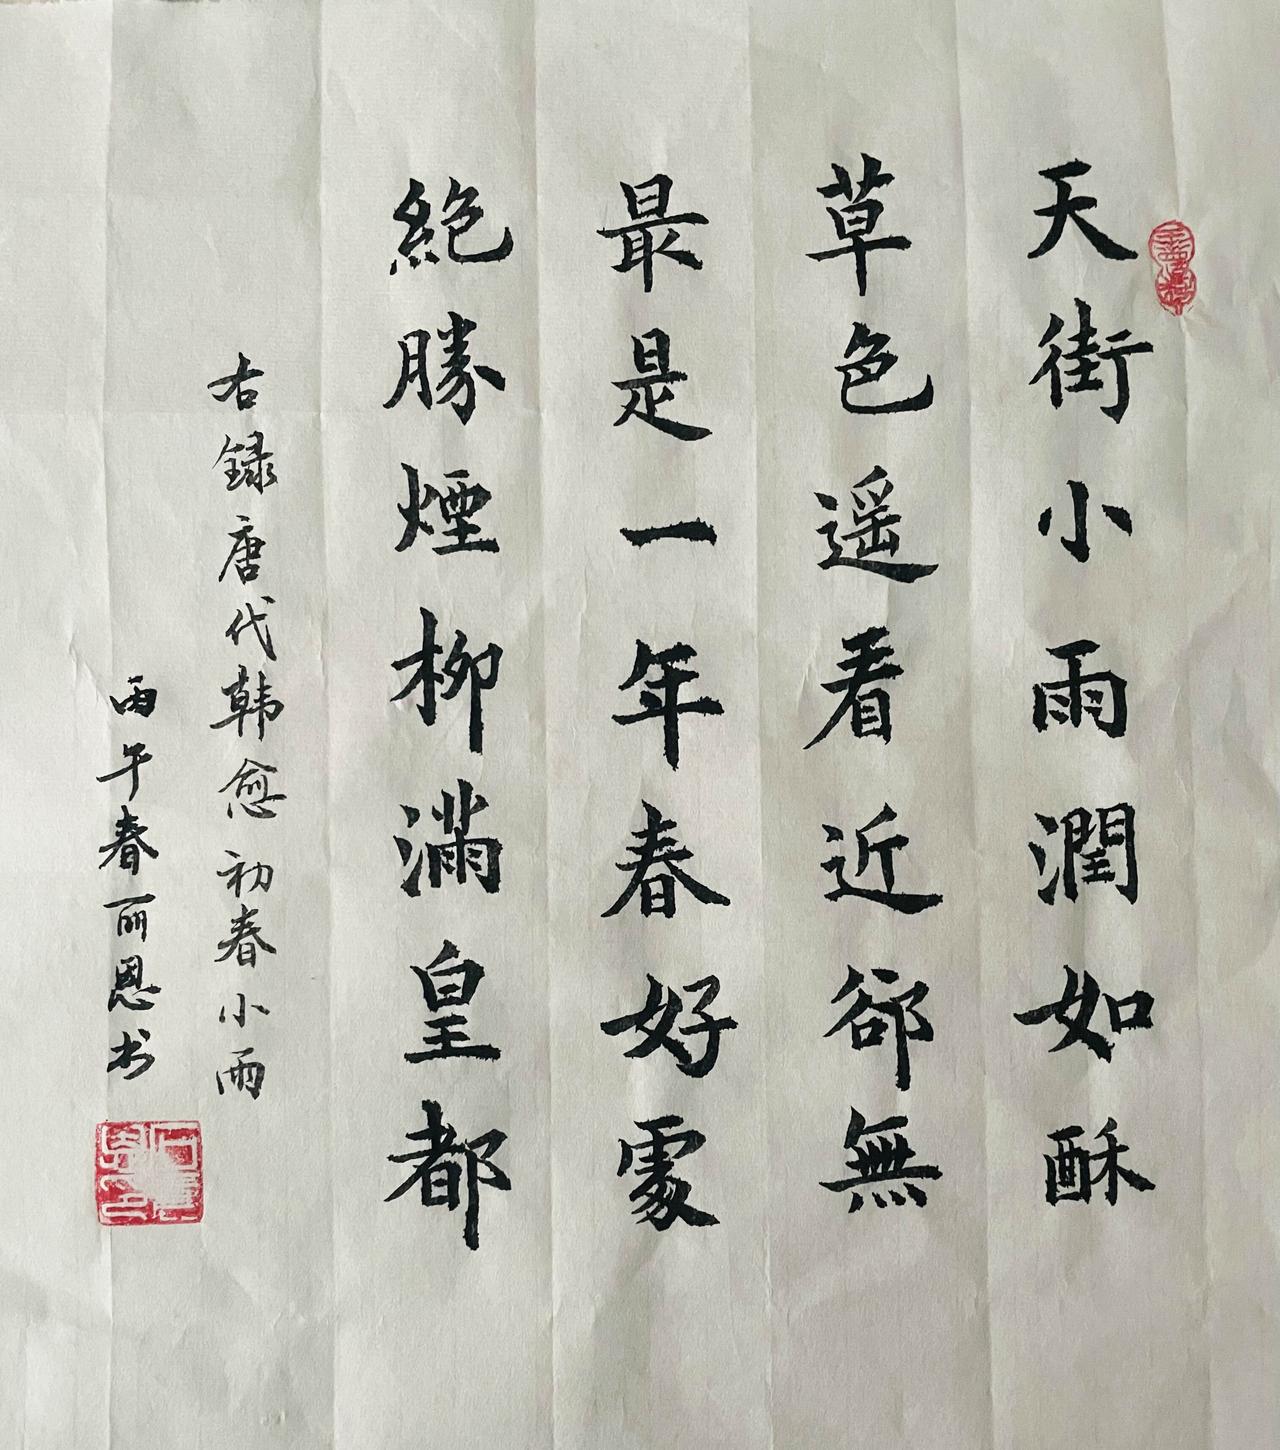 天街小雨潤如酥
草色遥看近郤無
最是一年春好處
絶勝煙柳滿皇都
右録唐代韩愈初春小雨
丙午春丽恩书